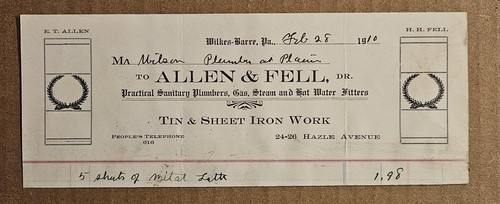 E. T. ALLEN
H. H. FELL
Wilkes-Barre, Pa., Feb 28 1910
M Wilson Plumber at Plains
TO ALLEN & FELL, DR.
Practical Sanitary Plumbers, Gas, Steam and Hot Water Fitters
TIN & SHEET IRON WORK
PEOPLE'S TELEPHONE
616
24-26 HAZLE AVENUE
5 sheets of Metal Lath 1.98